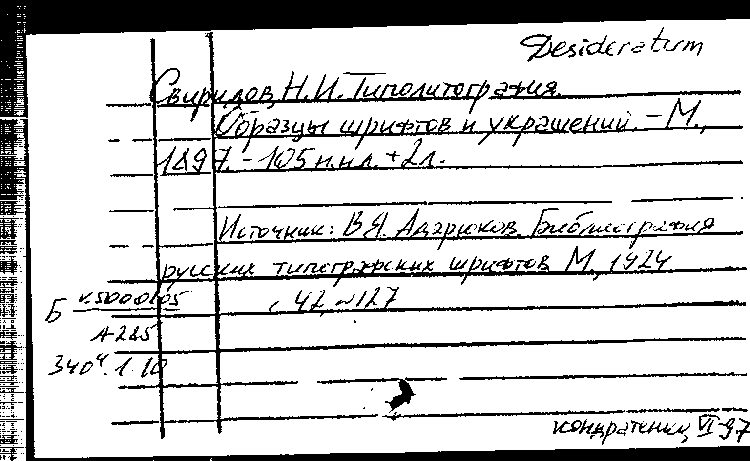 Desideratum
Свиридов, Н.И. Типолитография.
Образцы шрифтов и украшений. – М.,
1897. – 105 н.н.л. + 2л.
Источник: В.Я. Адарюков Библиография
русских типографских шрифтов М., 1924
с. 42, №127
Б
А-285
340ч.1.10
Кондратенко, VI-97